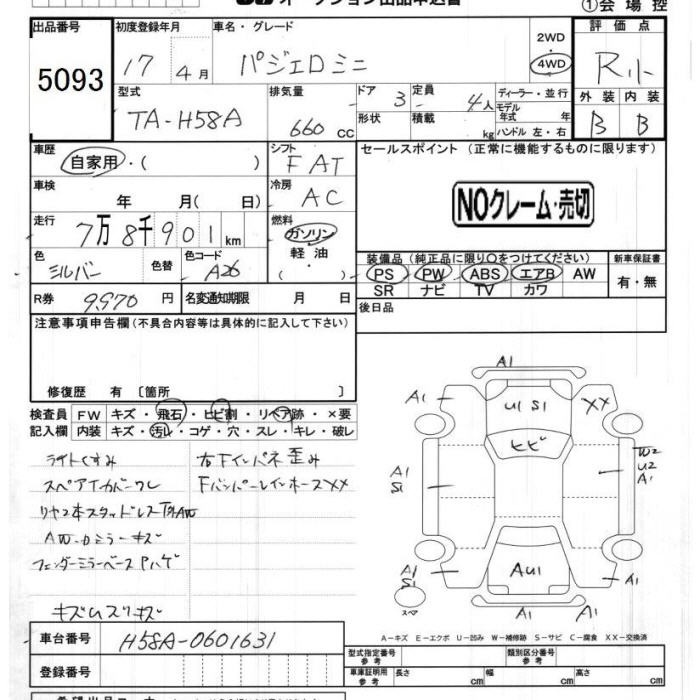 オークション出品申込書
①会場控
出品番号
5093
初度登録年月
17年 4月
車名・グレード
パジェロミニ
2WD
4WD
評価点
R小
外装 内装
B B
型式
TA-H58A
排気量
660 cc
ドア 3
形状
定員
4人
積載
kg
ディーラー・並行
モデル年式 年
ハンドル 左・右
車歴
自家用・( )
シフト
FAT
車検
年 月( 日)
冷房
AC
走行
7万8千901km
燃料
ガソリン
軽油
( )
色
シルバー
色替
色コード
A26
R券 9970円
名変通知期限 月 日
セールスポイント(正常に機能するものに限ります)
NOクレーム・売切
装備品(純正品に限り○をつけてください)
新車保証書
PS PW ABS エアB AW
SR ナビ TV カワ
有・無
後日品
注意事項申告欄(不具合内容等は具体的に記入して下さい)
修復歴 有〔箇所 〕
検査員記入欄
FW キズ・飛石・ヒビ割・リペア跡・×要
内装 キズ・汚レ・コゲ・穴・スレ・キレ・破レ
ライトくすみ
スペアTカバーワレ
リヤ2本スタッドレスT外AW
AW・カミラーキズ
フェンダーミラーベースPハゲ
キズムスリキズ
右Fインパネ歪み
FバンパーレインホースXX
A1
A1
U1 S1
XX
ヒビ
A1
S1
W2
U2
A1
AU1
A1
S1
スペア
A1
A1
A-キズ E-エクボ U-凹み W-補修跡 S-サビ C-腐食 XX-交換済
車台番号
H58A-0601631
登録番号
型式指定番号
参考
類別区分番号
参考
車庫証明用
参考
長さ cm
幅 cm
高さ cm